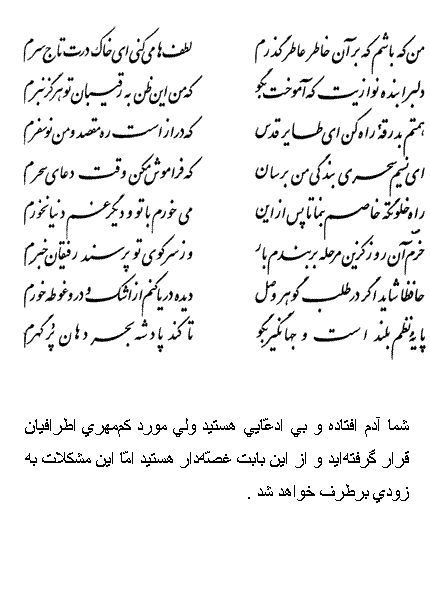 من که باشم که بر آن خاطر عاطر گذرم لطف‌ها می‌کنی ای خاک درت تاج سرم
دلبرا بنده نوازیت که آموخت بگو که من این ظن به رقیبان تو هرگز نبرم
همتم بدرقهٔ راه کن ای طایر قدس که دراز است ره مقصد و من نوسفرم
ای نسیم سحری بندگی من برسان که فراموش مکن وقت دعای سحرم
راه خلوتگه خاصم بنما تا پس از این می خورم با تو و دیگر غم دنیا نخورم
خرّم آن روز کزین مرحله بربندم بار وز سر کوی تو پرسند رفیقان خبرم
حافظا شاید اگر در طلب گوهر وصل دیده دریا کنم از اشک و در او غوطه خورم
پایهٔ نظم بلند است و جهانگیر بگو تا کند پادشه بحر دهان پر گهرم
شما آدم افتاده و بي ادعّايي هستيد ولي مورد كم‌مهري اطرافيان
قرار گرفته‌ايد و از اين بابت غصّه‌دار هستيد امّا اين مشكلات به
زودي برطرف خواهد شد .